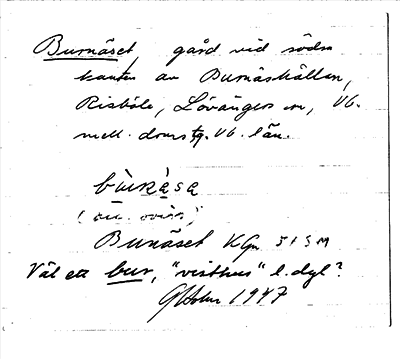 Burnäset, gård vid södra
kanten av Burnäskällen,
Risböle, Lövångers sn, Vb.
mell. domsg. Vb. län.
bùrnàsa
Burnäset KGn 51 SM
Väl ett bur, "visthus" l. dyl?
GHolm 1947